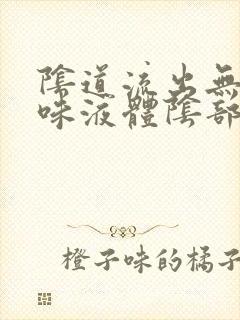 陰道流出無
味液體陰部
橙子味的橘子